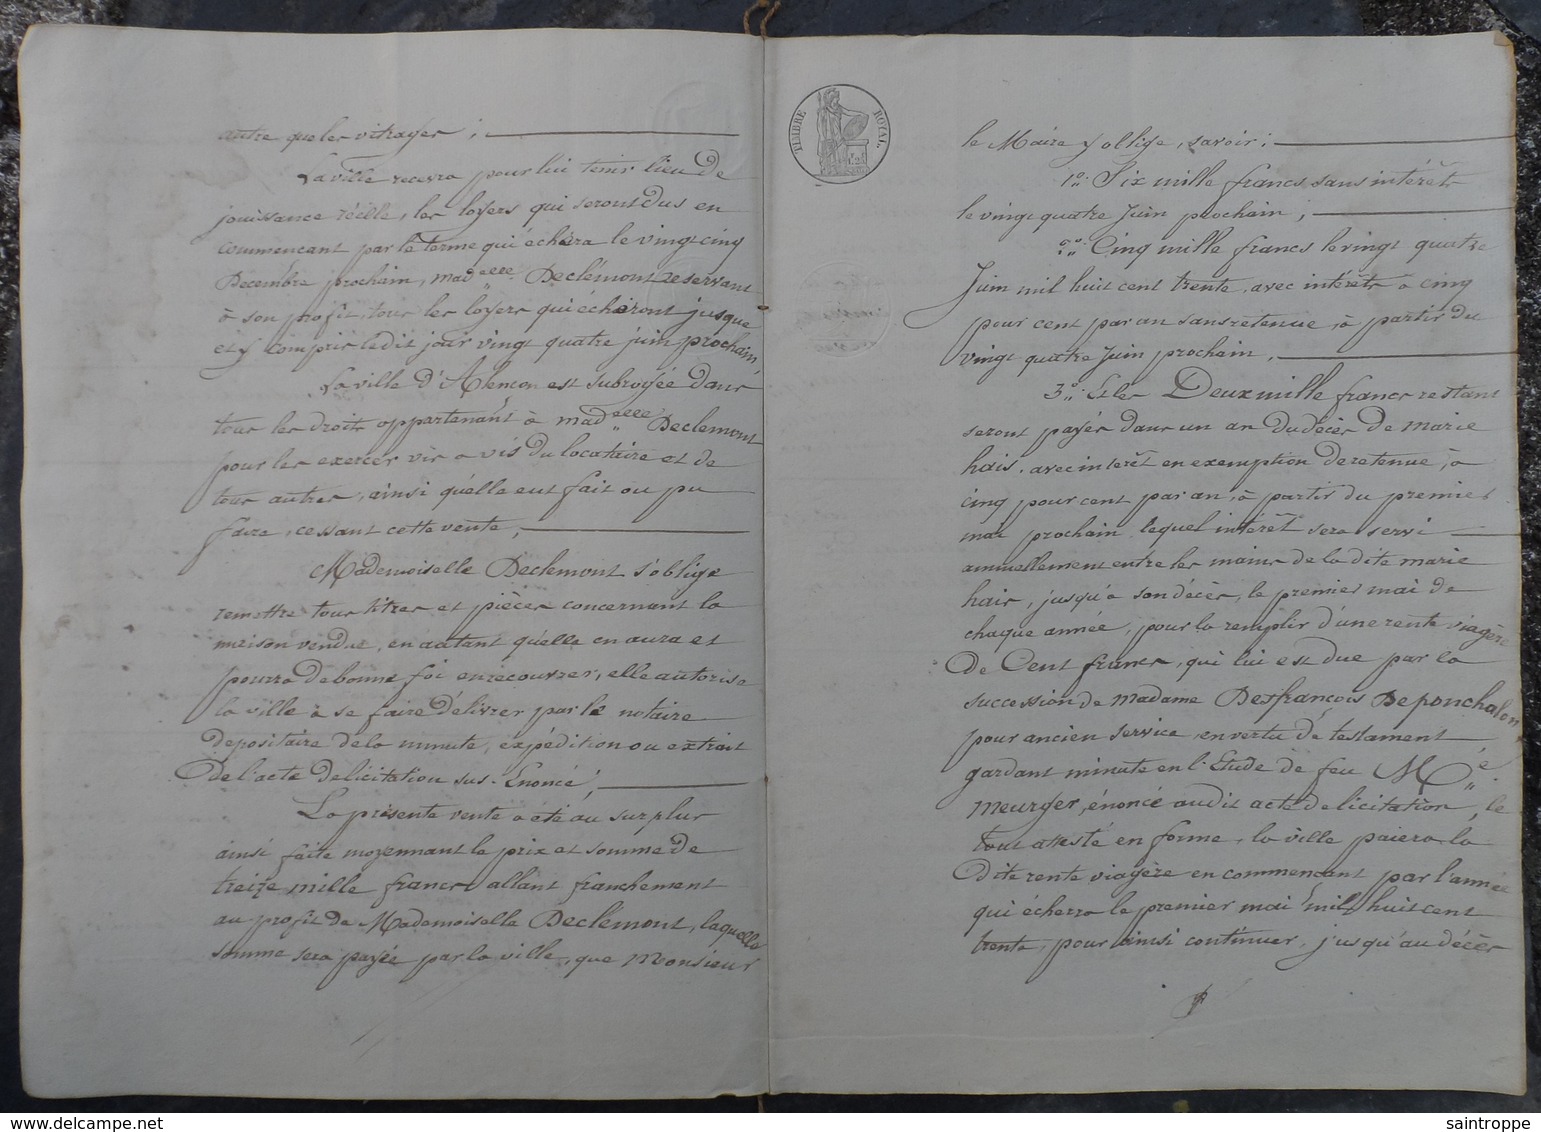 autre que les vitrages ;
La ville recevra pour lui tenir lieu de
jouissance réelle, les loyers qui seront dus en
commencant par le terme qui échéra le vingt cinq
Decembre prochain, mad.elle Declémont reservant
à son profit, tous les loyers qui échéront jusque
et y compris le dit jour vingt quatre juin prochain,
La ville d'Alencon est subrogée dans
tous les droits appartenant à mad.elle Declemont
pour les exercer vis à vis du locataire et de
tous autres, ainsi qu'elle eut fait ou pu
faire, cessant cette vente,
Mademoiselle Declemont s'oblige
remettre tous titres et pièces concernant la
maison vendue, en autant qu'elle en aura et
pourra de bonne foi en recouvrer, elle autorise
la ville à se faire délivrer par le notaire
depositaire de la minute, expédition ou extrait
De l'acte de licitation sus-Enoncé ;
La présente vente a été au surplus
ainsi faite moyennant le prix et somme de
treize mille francs allant franchement
au profit de Mademoiselle Declémont, laquelle
somme sera payée par la ville, que Monsieur
TIMBRE ROYAL
le Maire y oblige, savoir ;
1.° Six mille francs sans intérêts
le vingt quatre Juin prochain ;
2.° Cinq mille francs le vingt quatre
Juin mil huit cent trente, avec intérêts à cinq
pour cent par an sans retenue, à partir du
vingt quatre Juin prochain,
3.° Et les Deux mille francs restant
seront payés dans un an du décès de marie
hais, avec intérêt en exemption de retenue, à
cinq pour cent par an, à partir du premier
mai prochain lequel intérêt sera servi
annuellement entre les mains de la dite marie
hais, jusqu'à son décès, le premier mai de
chaque année, pour la remplir d'une rente viagère
De Cent francs, qui lui est due par la
succession de Madame Desfrancois De ponchalon
pour ancien service, en vertu de testament
gardant minute en l'Etude de feu M.e
meurger, énoncé au dit acte de licitation, le
tout attesté en forme, la ville paiera la
Dite rente viagère en commencant par l'année
qui écherra le premier mai mil huit cent
trente, pour ainsi continuer, jusqu'au décès
saintroppe